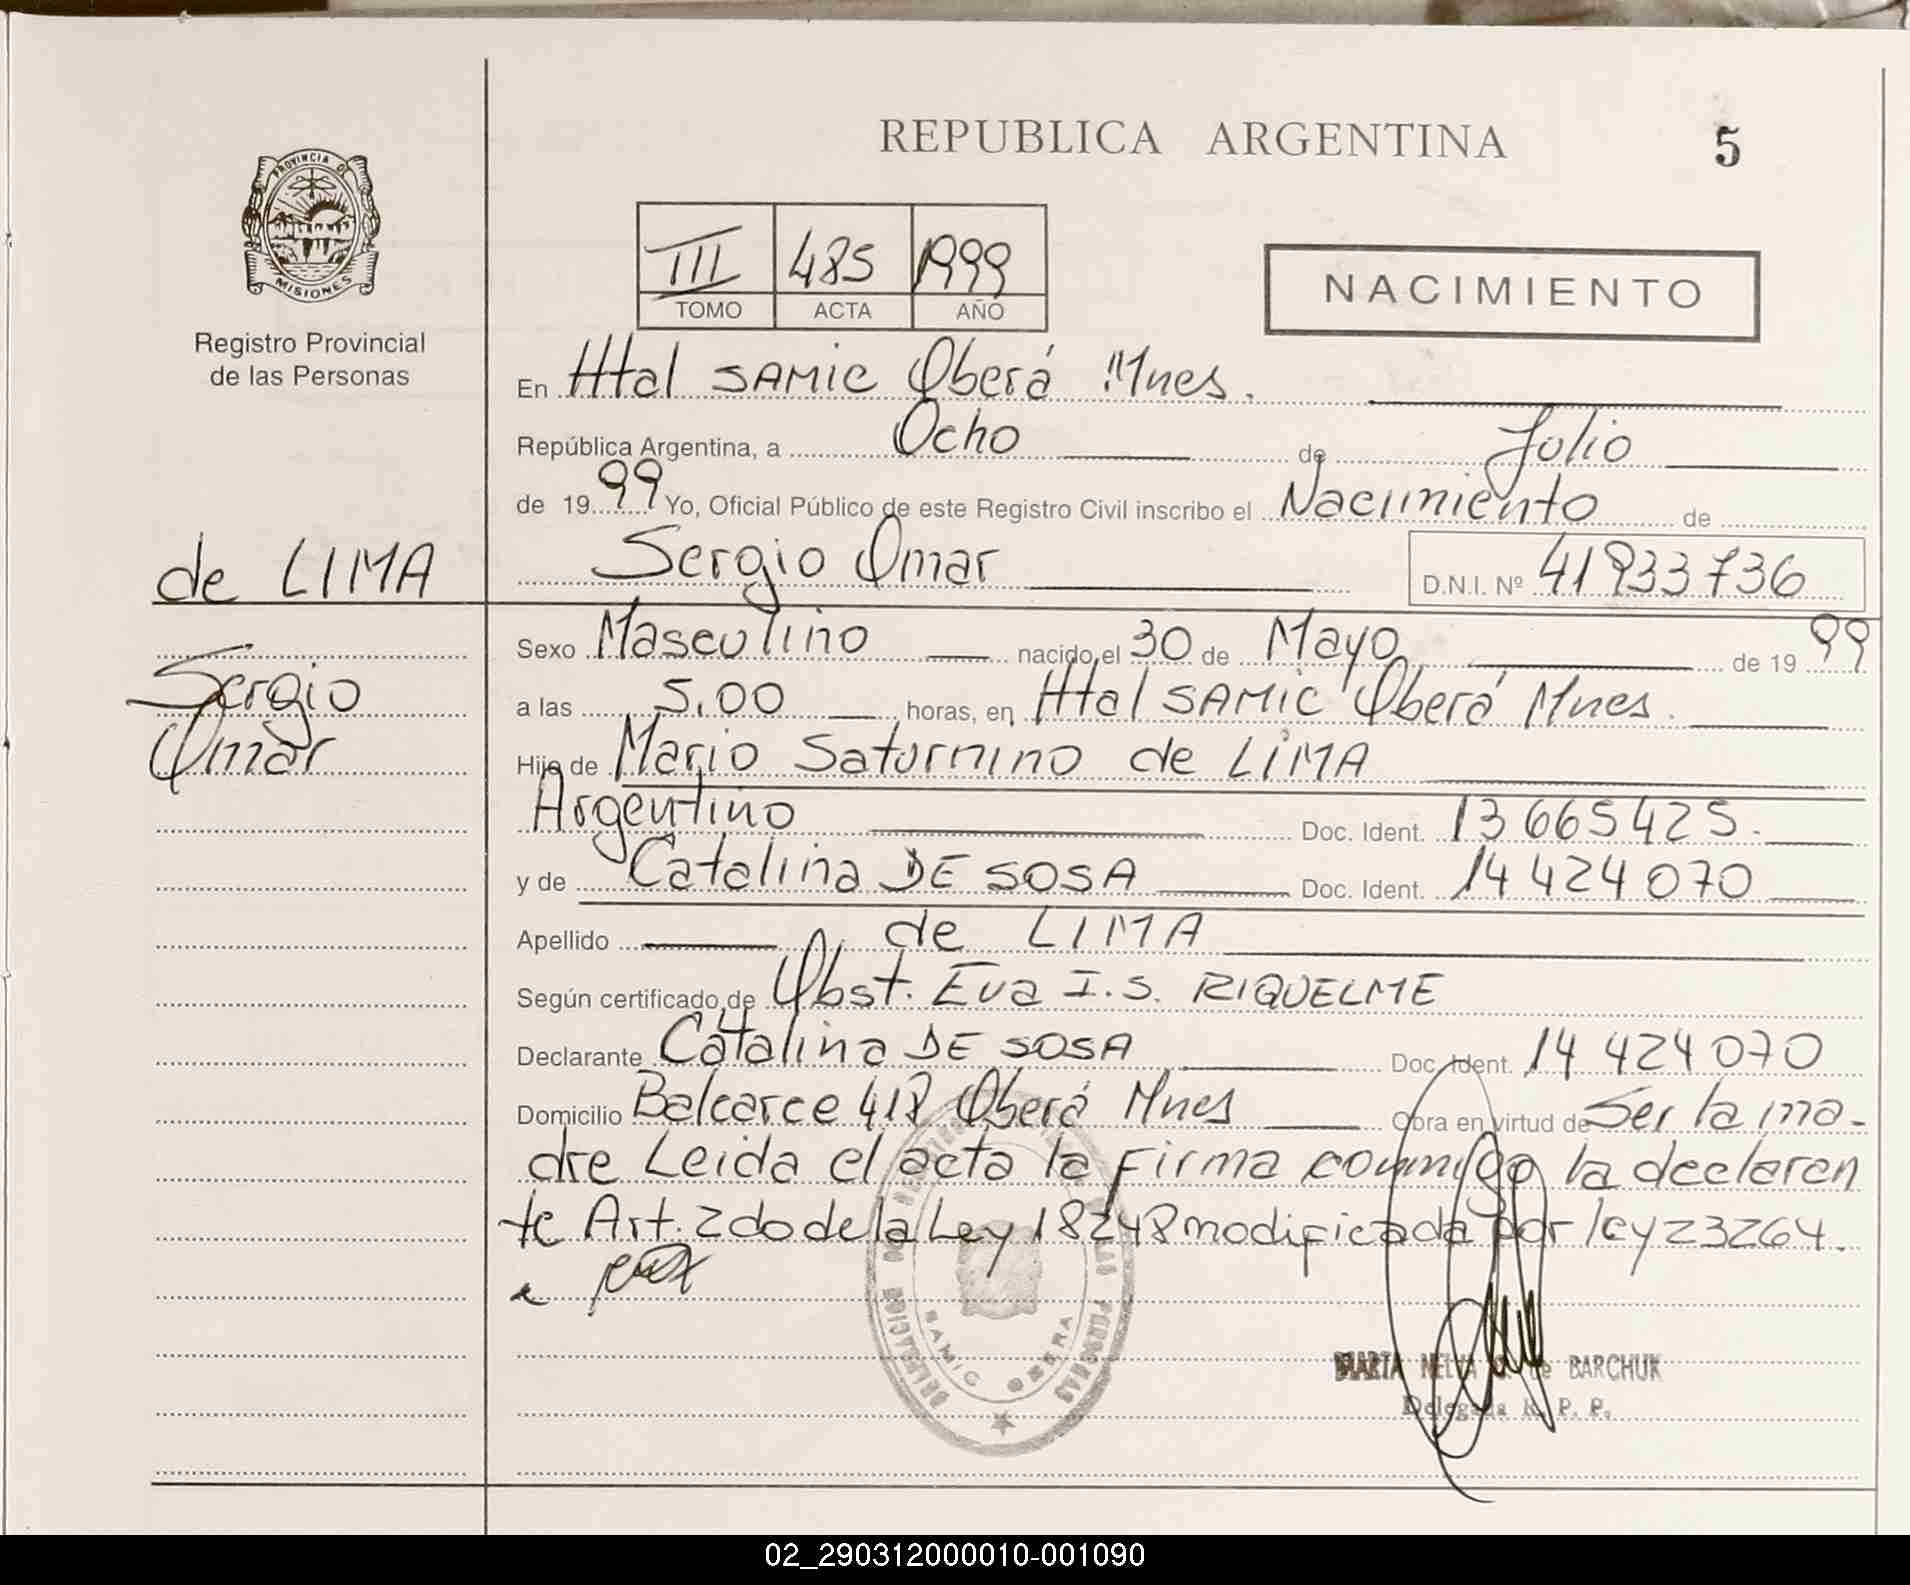 REPUBLICA ARGENTINA
5
PROVINCIA DE
MISIONES
Registro Provincial
de las Personas
III 485 1999
TOMO ACTA AÑO
NACIMIENTO
En Htal SAMIC Oberá Mnes.
República Argentina, a Ocho de Julio
de 1999 Yo, Oficial Público de este Registro Civil inscribo el Nacimiento de
de LIMA
Sergio Omar D.N.I. Nº 41933736
Sergio
Omar
Sexo Masculino nacido el 30 de Mayo de 1999
a las 5.00 horas, en Htal SAMIC Oberá Mnes.
Hijo de Mario Saturnino de LIMA
Argentino Doc. Ident. 13665425.
y de Catalina DE SOSA Doc. Ident. 14424070
Apellido de LIMA
Según certificado de Obst. Eva I.S. RIQUELME
Declarante Catalina DE SOSA Doc. Ident. 14 424 070
Domicilio Balcarce 418 Oberá Mnes Obra en virtud de Ser la ma-
dre Leida el acta la Firma conmigo la declaren
te Art. 2do de la Ley 18248 modificada por ley 23264.
SAMIC OBERA
MARTA NELVA de BARCHUK
Delegada R. P. P.
02_290312000010-001090